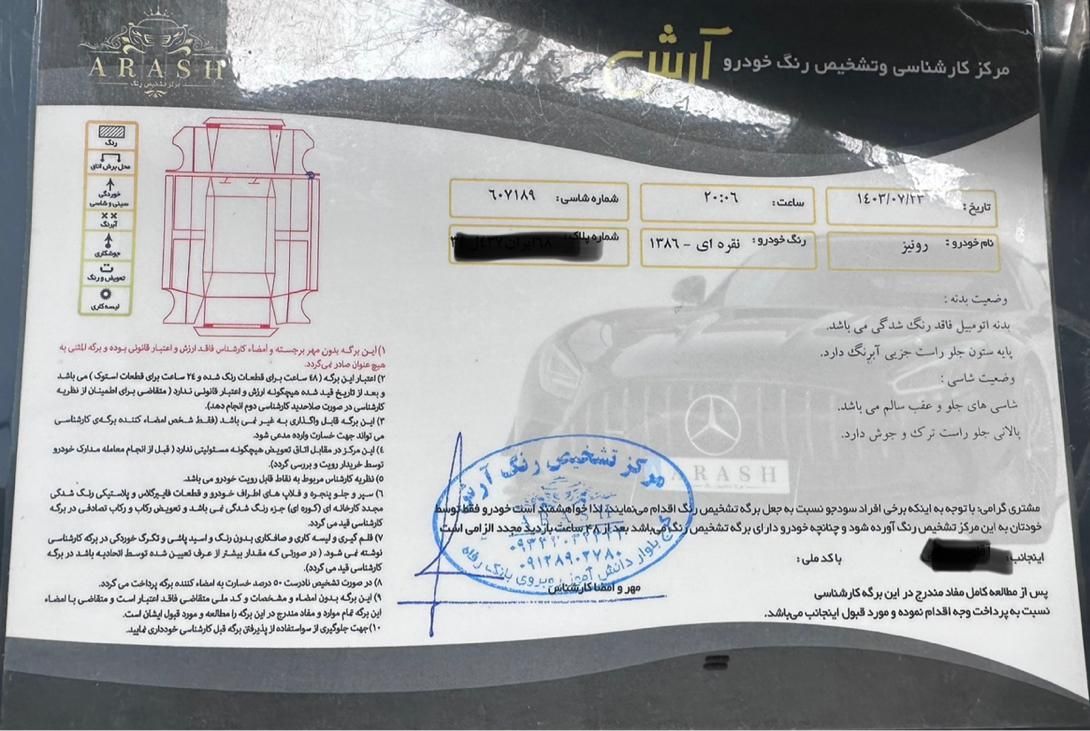 ARASH
مرکز تشخیص رنگ
مرکز کارشناسی وتشخیص رنگ خودرو آرش
رنگ
محل برش اتاق
خوردگی
سینی و شاسی
آبرنگ
جوشکاری
تعویض و رنگ
لیسه کاری
تاریخ: ۱۴۰۳/۰۷/۲۳
ساعت: ۲۰:۰۶
شماره شاسی: ۶۰۷۱۸۹
نام خودرو: رونیز
رنگ خودرو: نقره ای - ۱۳۸۶
شماره پلاک:
وضعیت بدنه :
بدنه اتومبیل فاقد رنگ شدگی می باشد.
پایه ستون جلو راست جزیی آبرنگ دارد.
وضعیت شاسی :
شاسی های جلو و عقب سالم می باشد.
پالانی جلو راست ترک و جوش دارد.
ARASH
۱) این برگه بدون مهر برجسته و امضاء کارشناس فاقد ارزش و اعتبار قانونی بوده و برگه المثنی به
هیچ عنوان صادر نمی‌گردد.
۲) اعتبار این برگه (۴۸ ساعت برای قطعات رنگ شده و ۲۴ ساعت برای قطعات استوک) می باشد
و بعد از تاریخ قید شده هیچگونه ارزش و اعتبار قانونی ندارد (متقاضی برای اطمینان از نظریه
کارشناسی در صورت صلاحدید کارشناسی دوم انجام دهد).
۳) این برگه قابل واگذاری به غیر نمی باشد (فقط شخص امضاء کننده برگه‌ی کارشناسی
می تواند جهت خسارت وارده مدعی شود.
۴) این مرکز در مقابل اتاق تعویض هیچگونه مسئولیتی ندارد (قبل از انجام معامله مدارک خودرو
توسط خریدار رویت و بررسی گردد).
۵) نظریه کارشناس مربوط به نقاط قابل رویت خودرو می باشد.
۶) سپر و جلو پنجره و فلاپ های اطراف خودرو و قطعات فایبرگلاس و پلاستیکی رنگ شدگی
مجدد کارخانه ای (کوره ای) جزء رنگ شدگی نمی باشد و تعویض رکاب و رکاب تصادفی در برگه
کارشناسی قید می گردد.
۷) قلم گیری و لیسه کاری و صافکاری بدون رنگ و اسید پاشی و تگرگ خوردگی در برگه کارشناسی
نوشته نمی شود. (در صورتی که مقدار بیشتر از عرف تعیین شده توسط اتحادیه باشد در برگه
کارشناسی قید می گردد).
۸) در صورت تشخیص نادرست ۵۰ درصد خسارت به امضاء کننده برگه پرداخت می گردد.
۹) این برگه بدون امضاء و مشخصات و کد ملی متقاضی فاقد اعتبار است و متقاضی با امضاء
این برگه تمام موارد و مفاد مندرج در این برگه را مطالعه و مورد قبول ایشان است.
۱۰) جهت جلوگیری از سواستفاده از پذیرفتن برگه قبل کارشناسی خودداری نمایید.
مشتری گرامی: با توجه به اینکه برخی افراد سودجو نسبت به جعل برگه تشخیص رنگ اقدام می‌نمایند، لذا خواهشمند است خودرو فقط توسط
خودتان به این مرکز تشخیص رنگ آورده شود و چنانچه خودرو دارای برگه تشخیص رنگ می‌باشد بعد از ۴۸ ساعت بازدید مجدد الزامی است
اینجانب: با کد ملی :
پس از مطالعه کامل مفاد مندرج در این برگه کارشناسی
نسبت به پرداخت وجه اقدام نموده و مورد قبول اینجانب می‌باشد.
مهر و امضا کارشناس
مرکز تشخیص رنگ آرش
۰۹۱۲۸۹۰۲۷۸۰
بلوار دانش آموز روبروی بانک رفاه